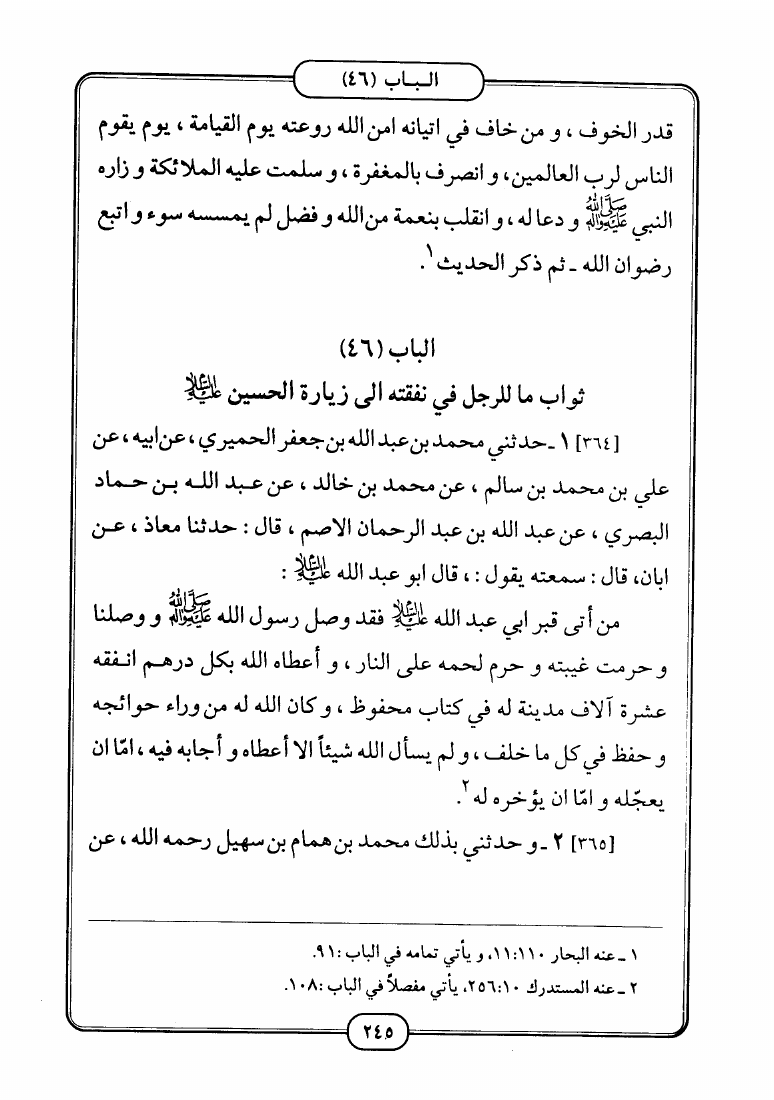 البـاب (٤٦)
قدر الخوف ، و من خاف في اتيانه امن الله روعته يوم القيامة ، يوم يقوم
الناس لرب العالمين، و انصرف بالمغفرة ، و سلمت عليه الملائكة و زاره
النبي ﷺ و دعا له ، و انقلب بنعمة من الله و فضل لم يمسسه سوء و اتبع
رضوان الله ـ ثم ذكر الحديث ١.
الباب (٤٦)
ثواب ما للرجل في نفقته الى زيارة الحسين عليه السلام
[٣٦٤] ١ ـ حدثني محمد بن عبد الله بن جعفر الحميري ، عن ابيه ، عن
علي بن محمد بن سالم ، عن محمد بن خالد ، عن عبد الله بن حماد
البصري ، عن عبد الله بن عبد الرحمان الاصم ، قال : حدثنا معاذ ، عن
ابان، قال : سمعته يقول : ، قال ابو عبد الله عليه السلام :
من أتى قبر ابي عبد الله عليه السلام فقد وصل رسول الله ﷺ و وصلنا
و حرمت غيبته و حرم لحمه على النار ، و أعطاه الله بكل درهم انفقه
عشرة آلاف مدينة له في كتاب محفوظ ، و كان الله له من وراء حوائجه
و حفظ في كل ما خلف ، و لم يسأل الله شيئاً الا أعطاه و أجابه فيه ، امّا ان
يعجّله و امّا ان يؤخره له ٢.
[٣٦٥] ٢ ـ و حدثني بذلك محمد بن همام بن سهيل رحمه الله ، عن
١ ـ عنه البحار ١١:١١٠، و يأتي تمامه في الباب :٩١.
٢ ـ عنه المستدرك ٢٥٦:١٠، يأتي مفصلاً في الباب :١٠٨.
٢٤٥